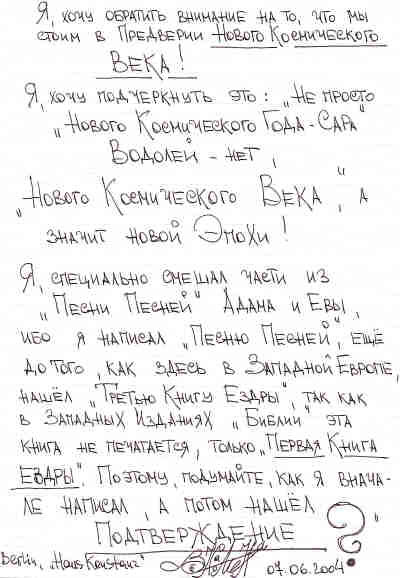 Я, хочу обратить внимание на то, что мы
стоим в Предверии Нового Космического
Века!
Я, хочу подчеркнуть это: „Не просто
„Нового Космического Года-Сара"
Водолей - нет,
„Нового Космического Века", а
значит новой Эпохи!
Я, специально смешал части из
„Песни Песней" Адама и Евы,
ибо я написал „Песню Песней", ещё
до того, как здесь в Западной Европе,
нашёл „Третью Книгу Ездры", так как
в Западных Изданиях „Библии" эта
книга не печатается, только „Первая Книга
Ездры". Поэтому, подумайте, как я внача-
ле написал, а потом нашёл
Подтверждение ?"
Berlin, „Haus Konstanz" 07.06.2004